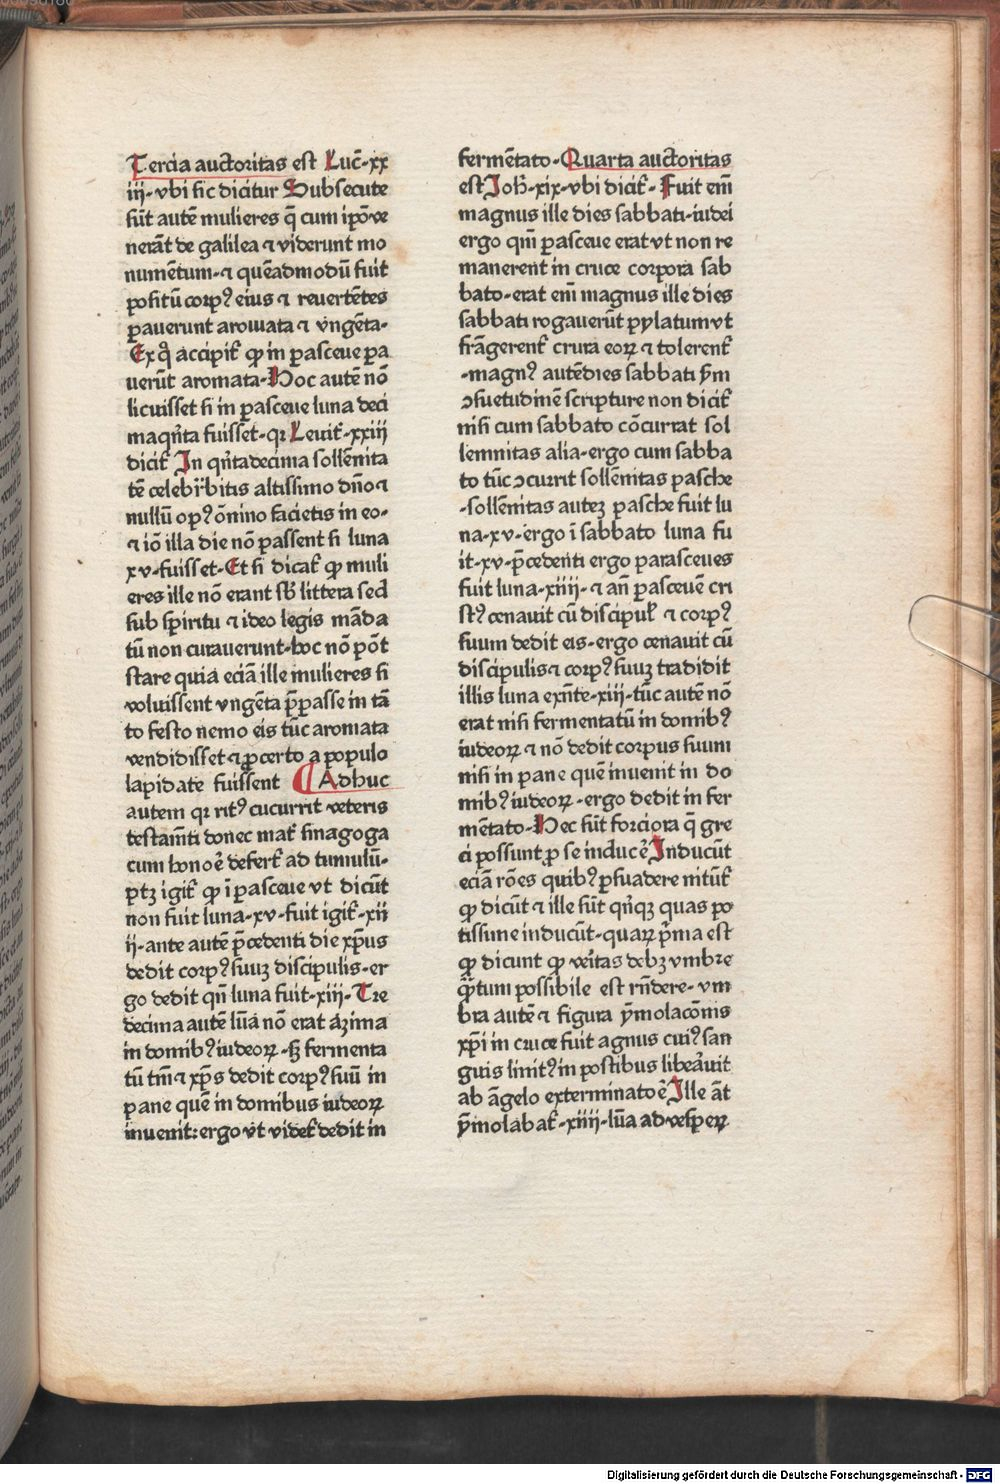 Tercia auctoritas est Luc̄-xx
iij-vbi sic dicitur Subsecute
sūt autē mulieres q̄ cum ip̄o ve
nerāt de galilea ⁊ viderunt mo
numētum-⁊ quēadmodū fuit
positū corpꝰ eius ⁊ reuertētes
pauerunt aromata ⁊ vngēta-
Ex qͦ accipit̄ ꝙ in pasceue pa
uerūt aromata-Hoc autē nō
licuisset si in pasceue luna deci
maqn̄ta fuisset-qꝛ Leuit̄-xxiij
dicit̄ In qn̄tadecima sollēnita
tē celebr̄bitis altissimo dn̄o ⁊
nullū opꝰ ōnino facietis in eo-
⁊ iō illa die nō passent si luna
xv-fuisset-Et si dicat̄ ꝙ muli
eres ille nō erant sb̄ littera sed
sub spiritu ⁊ ideo legis māda
tū non curauerunt-hoc nō pōt
stare quia eciā ille mulieres si
voluissent vngēta p̄passe in tā
to festo nemo eis tūc aromata
vendidisset ⁊ ꝑcerto a populo
lapidate fuissent ¶ Adhuc
autem qꝛ ritꝰ cucurrit veteris
testamn̄ti donec mat̄ sinagoga
cum hono ē defert̄ ad tumulū-
ptꝫ igit̄ ꝙ ī pasceue vt dicūt
non fuit luna-xv-fuit igit̄-xii
ii-ante autē p̄cedenti die xp̄us
dedit corpꝰ suuꝫ discipulis-er
go dedit qn̄ luna fuit-xiii-Tre
decima autē lūa nō erat aꝫima
in domibꝰ iudeoꝝ-sꝫ fermenta
tū tm̄ ⁊ xp̄s dedit corpꝰ suū in
pane quē in domibus iudeoꝝ
inuenit:ergo vt videt̄ dedit in
fermētato-Quarta auctoritas
est Joh̄-xix-vbi dicit̄-Fuit em̄
magnus ille dies sabbati-iudei
ergo qm̄ pasceue erat vt non re
manerent in cruce corpora sab
bato-erat em̄ magnus ille dies
sabbati rogauerūt pylatum vt
frāgerent̄ crura eoꝝ ⁊ tolerent̄
-magnꝰ autē dies sabbati ẜm
ↄsuetudinē scripture non dicit̄
nisi cum sabbato cōcurrat sol
lemnitas alia-ergo cum sabba
to tūc ↄcurrit sollēnitas pasche
-sollēnitas auteꝫ pasche fuit lu
na-xv-ergo ī sabbato luna fu
it-xv-p̄cedenti ergo parasceues
fuit luna-xiiii-⁊ an̄ pasceuē cri
stꝰ cenauit cū discipul̄ ⁊ corpꝰ
suum dedit eis-ergo cenauit cū
discipulis ⁊ corpꝰ suuꝫ tradidit
illis luna exn̄te-xiii-tūc autē nō
erat nisi fermentatū in domibꝰ
iudeoꝝ ⁊ nō dedit corpus suum
nisi in pane quē inuenit in do
mibꝰ iudeoꝝ-ergo dedit in fer
mētato-Hec sūt forciora q̄ gre
ci possunt ꝓ se induc̄ē Inducūt
eciā rōes quibꝰ ꝑsuadere nitūt̄
ꝙ dicūt ⁊ ille sūt qn̄qꝫ quas po
tissime inducūt-quaꝝ p̄ma est
ꝙ dicunt ꝙ veritas debꝫ vmbre
qᷓtum possibile est rn̄dere-vm
bra autē ⁊ figura ẏmolacōnis
xp̄i in cruce fuit agnus cuiꝰ san
guis linitꝰ in postibus libeāuit
ab āgelo exterminato ē Ille āt
ẏmolabat̄-xiiii-lūa ad vesperꝝ
Digitalisierung gefördert durch die Deutsche Forschungsgemeinschaft - DFG